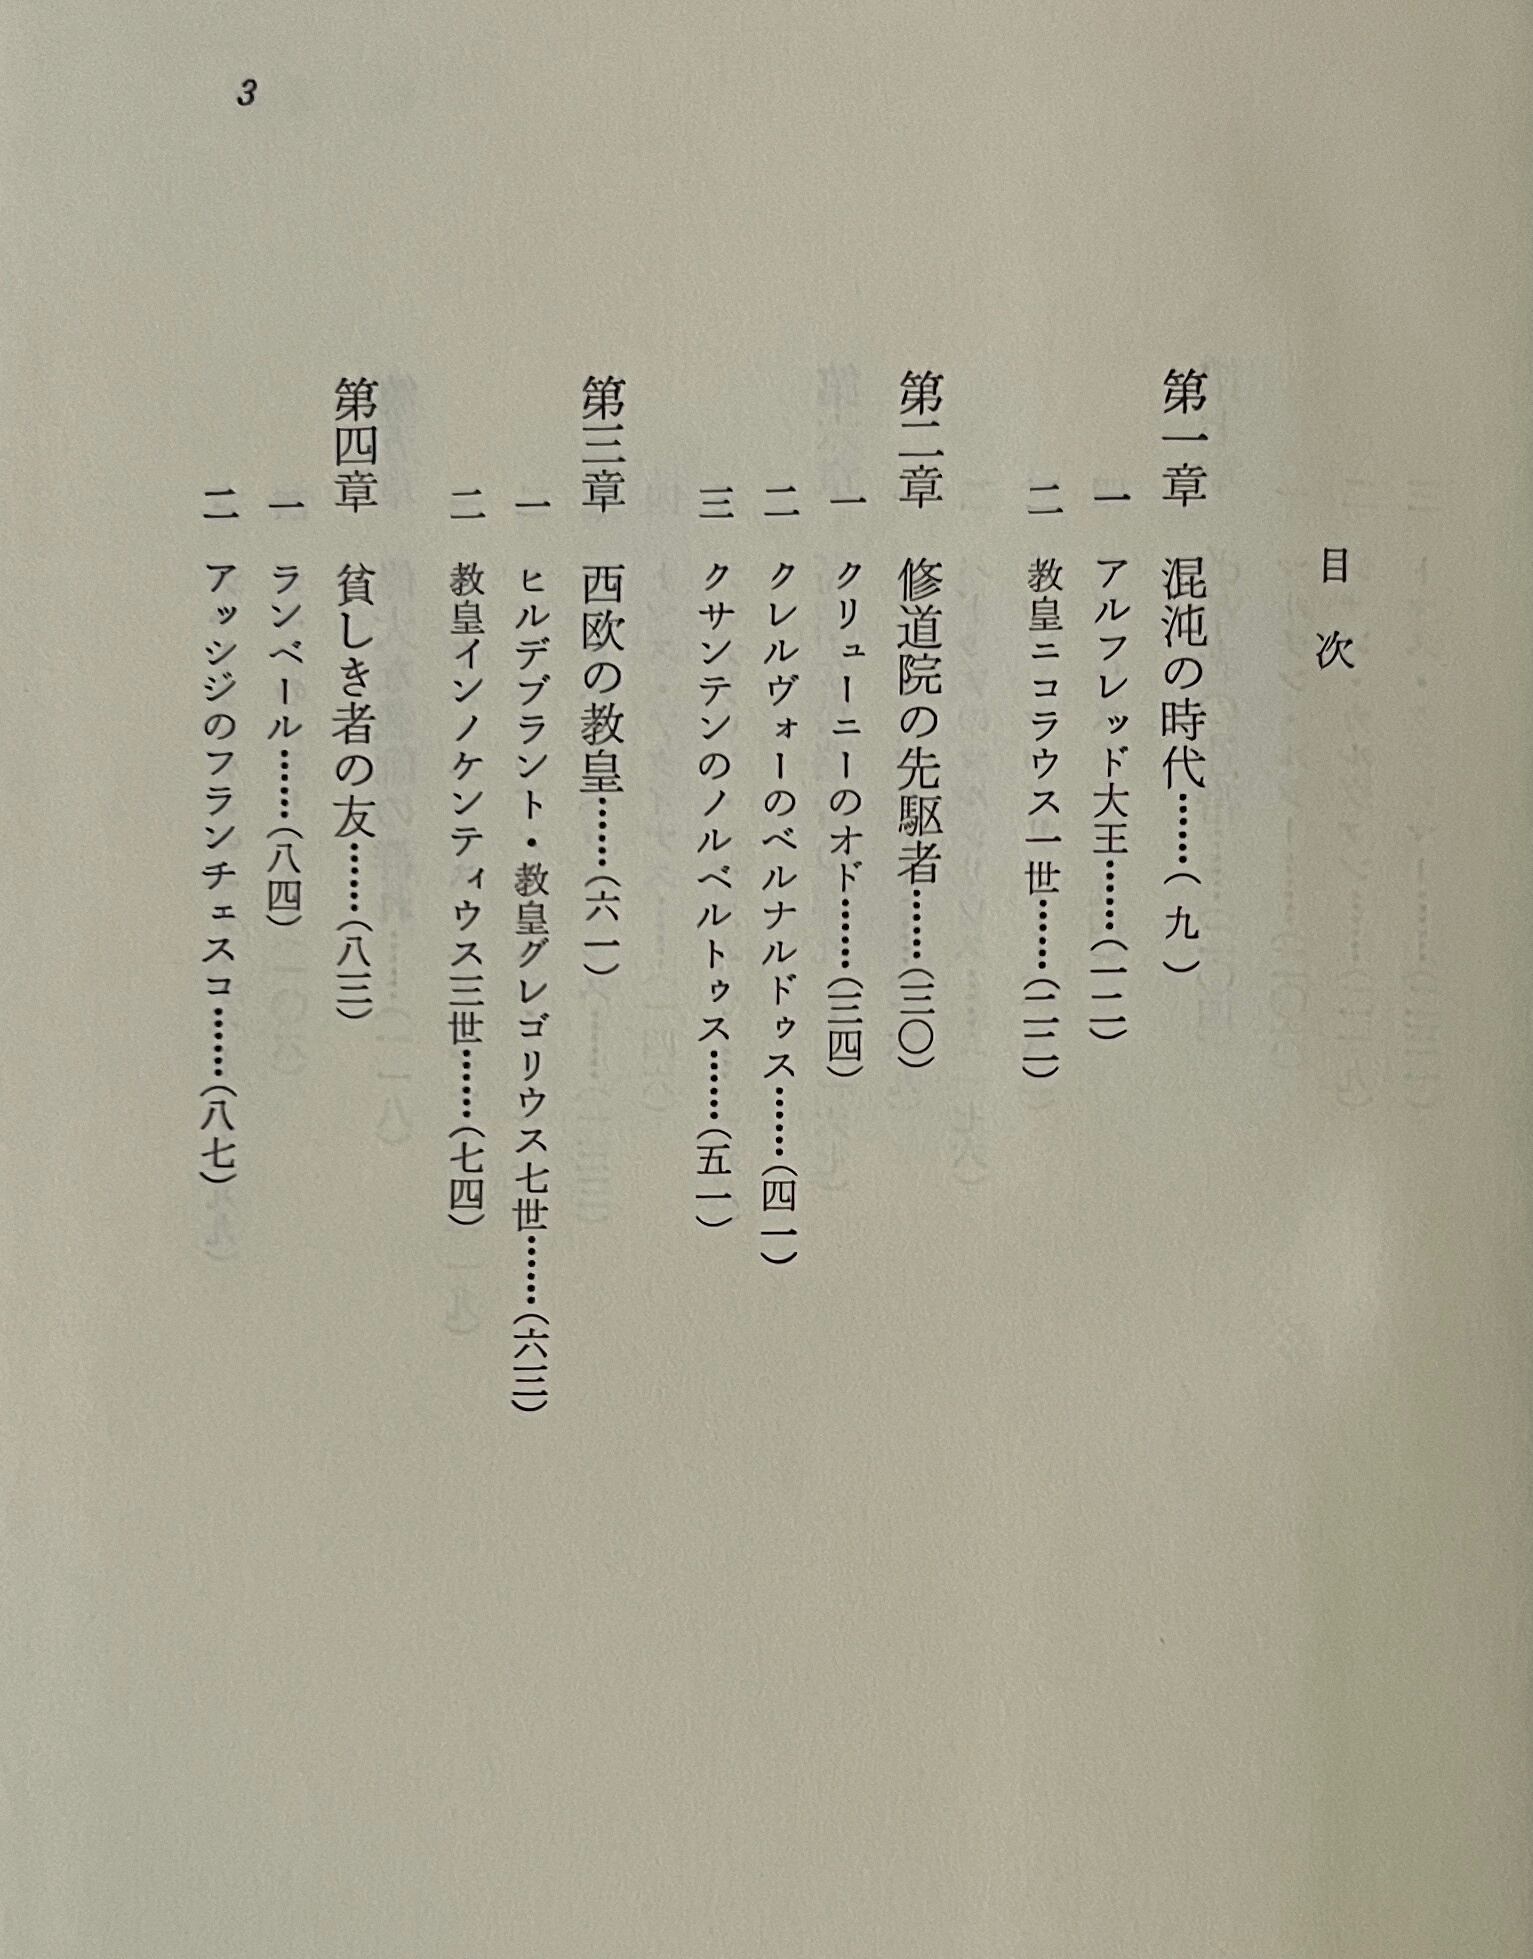 3
目次
第一章 混沌の時代……(九)
一 アルフレッド大王……(一二)
二 教皇ニコラウス一世……(二二)
第二章 修道院の先駆者……(三〇)
一 クリューニーのオド……(三四)
二 クレルヴォーのベルナルドゥス……(四一)
三 クサンテンのノルベルトゥス……(五一)
第三章 西欧の教皇……(六一)
一 ヒルデブラント・教皇グレゴリウス七世……(六三)
二 教皇インノケンティウス三世……(七四)
第四章 貧しき者の友……(八三)
一 ランベール……(八四)
二 アッシジのフランチェスコ……(八七)